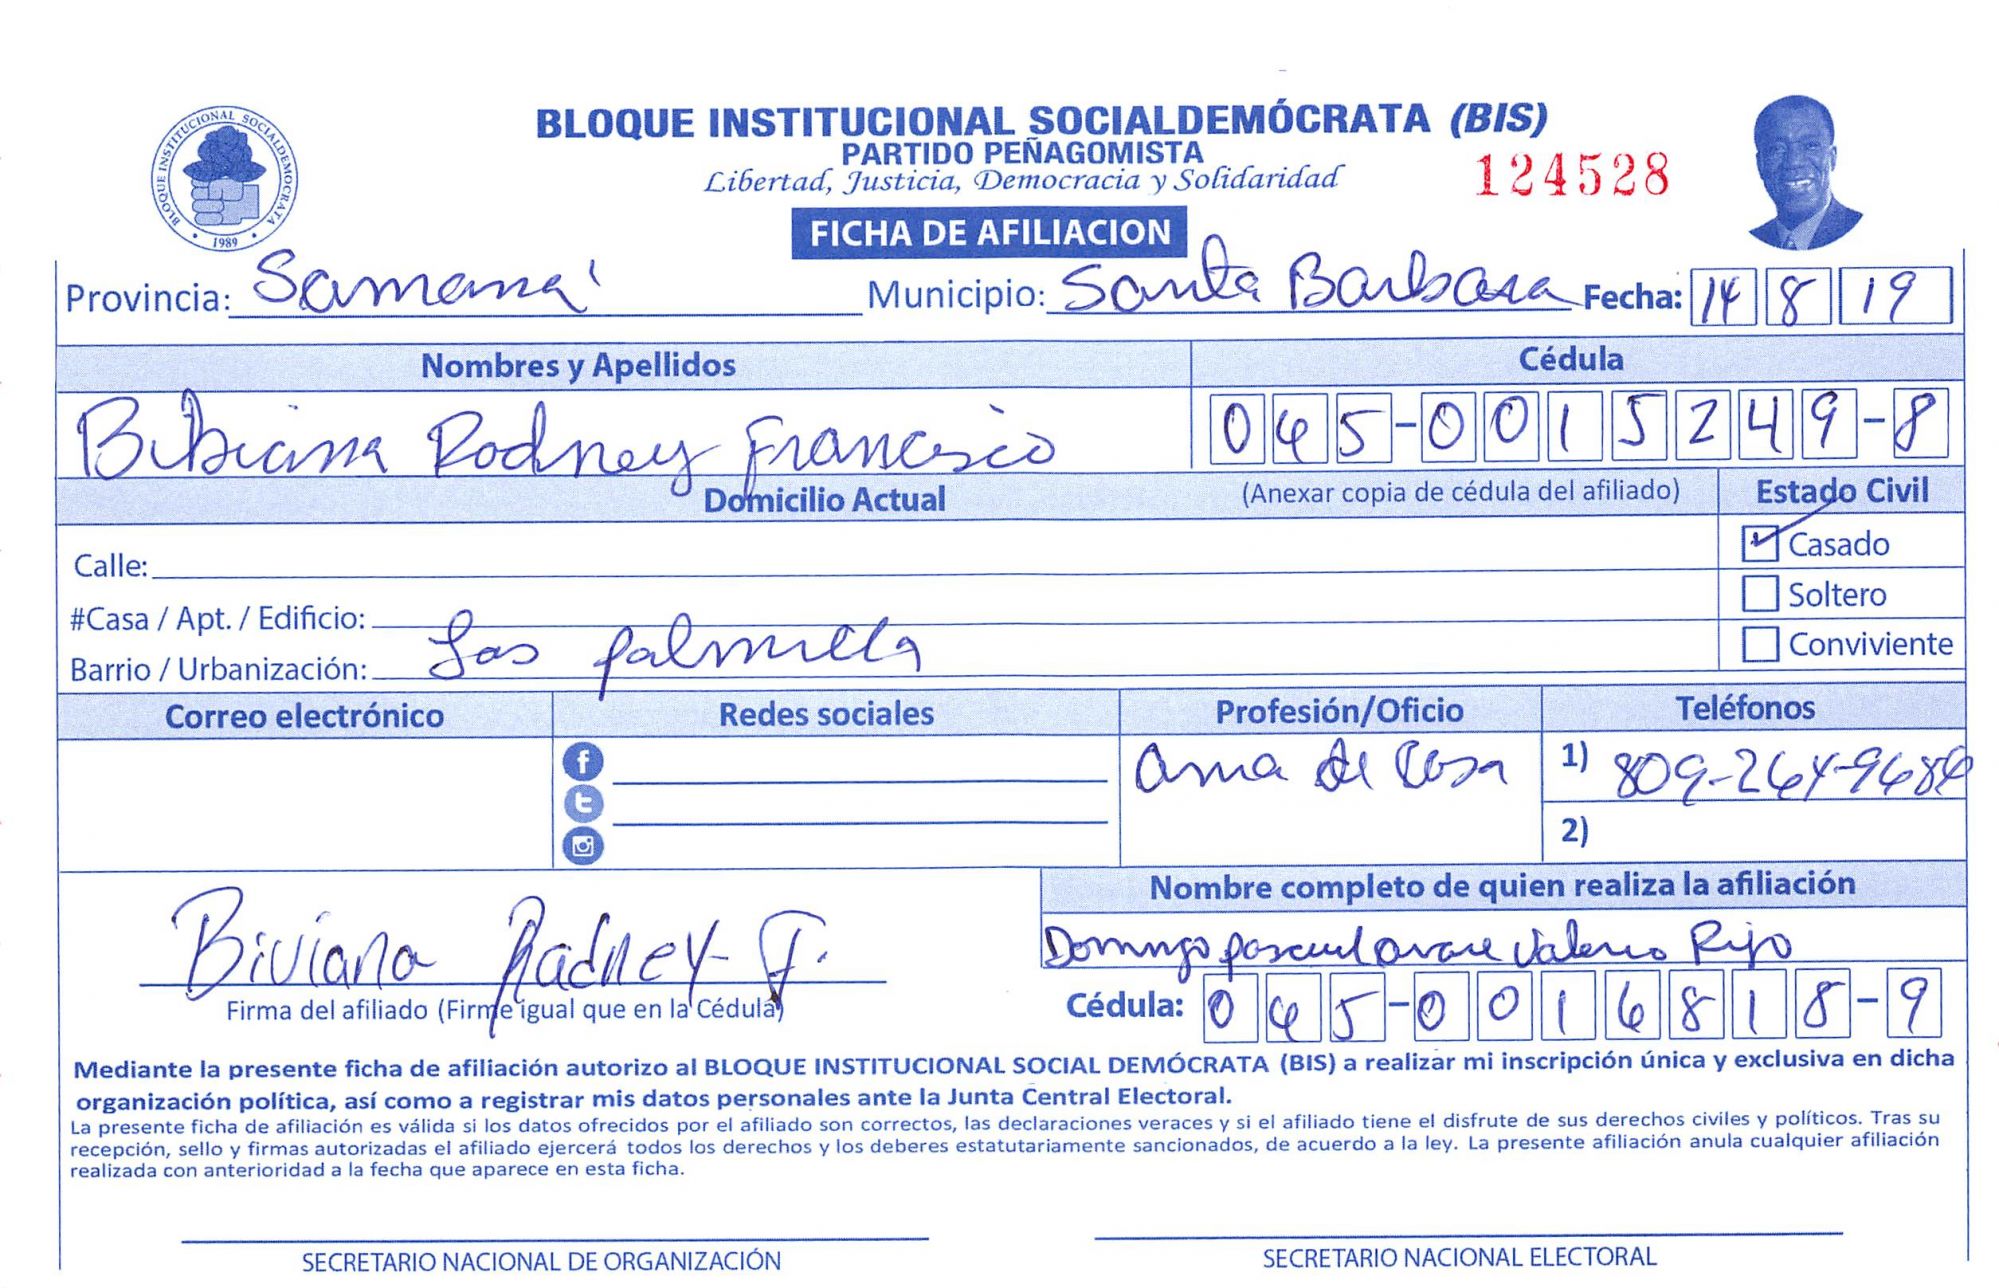 BLOQUE INSTITUCIONAL SOCIALDEMÓCRATA
1989
BLOQUE INSTITUCIONAL SOCIALDEMÓCRATA (BIS)
PARTIDO PEÑAGOMISTA
Libertad, Justicia, Democracia y Solidaridad
124528
FICHA DE AFILIACION
Provincia: Samaná Municipio: Santa Barbara Fecha: 14 8 19
Nombres y Apellidos Cédula
Bibiana Rodney Francisco 045-0015249-8
Domicilio Actual (Anexar copia de cédula del afiliado) Estado Civil
Calle: Casado
#Casa / Apt. / Edificio: Soltero
Barrio / Urbanización: Las palmilla Conviviente
Correo electrónico Redes sociales Profesión/Oficio Teléfonos
ama de Casa 1) 809-264-968
2)
Nombre completo de quien realiza la afiliación
Biviana Radney F. Domingo Valerio Rijo
Firma del afiliado (Firme igual que en la Cédula) Cédula: 045-0016818-9
Mediante la presente ficha de afiliación autorizo al BLOQUE INSTITUCIONAL SOCIAL DEMÓCRATA (BIS) a realizar mi inscripción única y exclusiva en dicha
organización política, así como a registrar mis datos personales ante la Junta Central Electoral.
La presente ficha de afiliación es válida si los datos ofrecidos por el afiliado son correctos, las declaraciones veraces y si el afiliado tiene el disfrute de sus derechos civiles y políticos. Tras su
recepción, sello y firmas autorizadas el afiliado ejercerá todos los derechos y los deberes estatutariamente sancionados, de acuerdo a la ley. La presente afiliación anula cualquier afiliación
realizada con anterioridad a la fecha que aparece en esta ficha.
SECRETARIO NACIONAL DE ORGANIZACIÓN SECRETARIO NACIONAL ELECTORAL